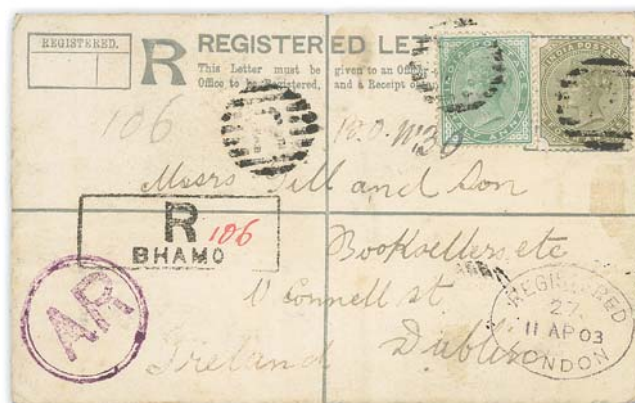 REGISTERED.
R REGISTERED LET
This Letter must be given to an Officer
Office to be Registered, and a Receipt
INDIA POSTAGE
INDIA POSTAGE
106
Messrs Gill and Son
R 106
BHAMO
Booksellers etc
O'Connell st
Dublin
Ireland
AR
REGISTERED
27
11 AP 03
LONDON